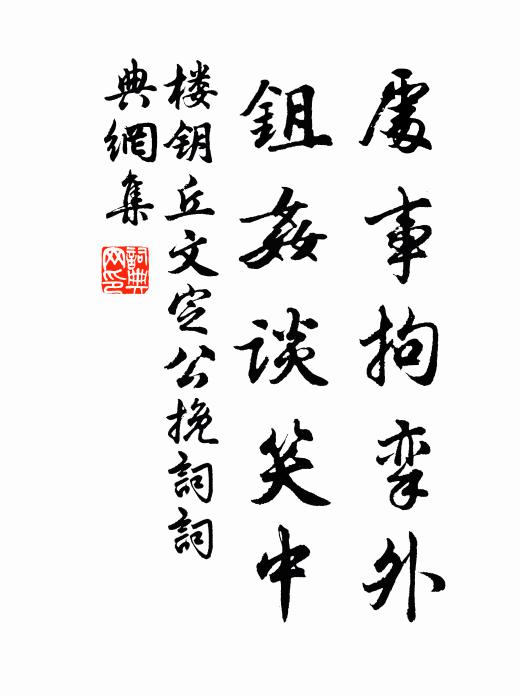 處事拘挛外
鉏姦談笑中
楼鑰丘文定公挽詞詞
典網集
詞典
网印